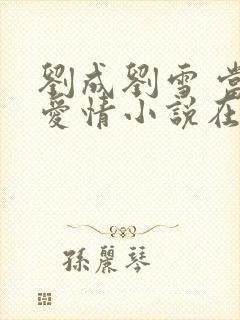 劉成劉雪 當
愛情小説在
孫麗琴